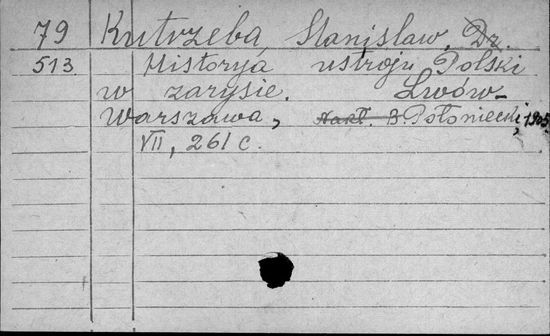 79 Kutrzeba, Stanisław, Dr.
513. Historya ustroju Polski
w zarysie. Lwów-
Warszawa, Nakł. B. Połoniecki, 1905
VII, 261 c.